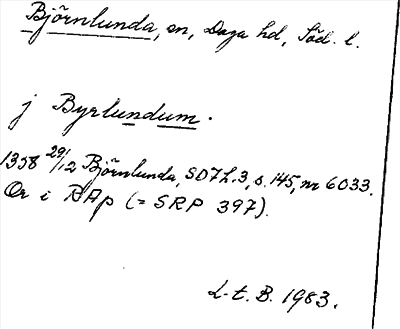 Björnlunda, sn, Daga hd, Söd. l.
j Byrlundum.
1358 29/12 Björnlunda, SD 7 h.3, s. 145, nr 6033.
Or i RAp (= SRP 397).
L-t. B. 1983.